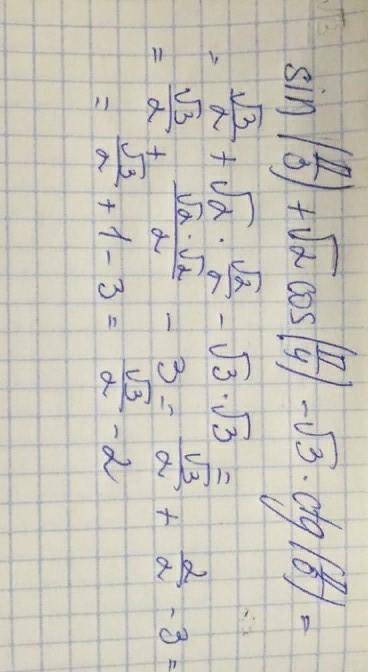 sin(π/3) + √2 cos(π/4) - √3 · ctg(π/6) =
= √3/2 + √2 · √2/2 - √3 · √3 =
= √3/2 + √2·√2/2 - 3 = √3/2 + 2/2 - 3 =
= √3/2 + 1 - 3 = √3/2 - 2